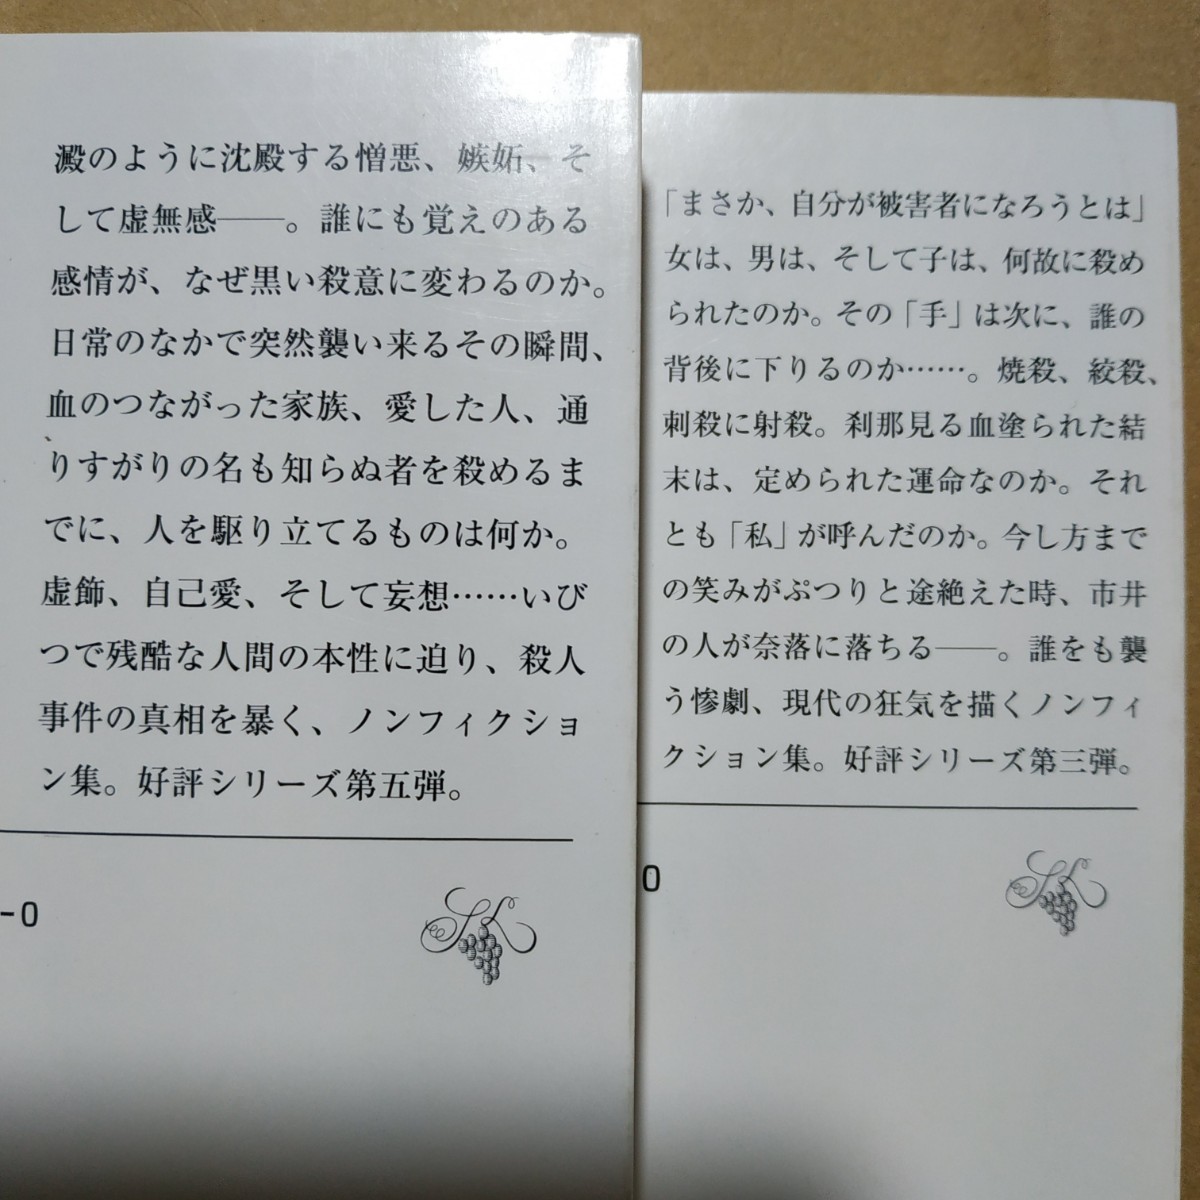 澱のように沈殿する憎悪、嫉妬、そ
して虚無感――。誰にも覚えのある
感情が、なぜ黒い殺意に変わるのか。
日常のなかで突然襲い来るその瞬間、
血のつながった家族、愛した人、通
りすがりの名も知らぬ者を殺めるま
でに、人を駆り立てるものは何か。
虚飾、自己愛、そして妄想……いび
つで残酷な人間の本性に迫り、殺人
事件の真相を暴く、ノンフィクショ
ン集。好評シリーズ第五弾。
-0
「まさか、自分が被害者になろうとは」
女は、男は、そして子は、何故に殺め
られたのか。その「手」は次に、誰の
背後に下りるのか……。焼殺、絞殺、
刺殺に射殺。刹那見る血塗られた結
末は、定められた運命なのか。それ
とも「私」が呼んだのか。今し方まで
の笑みがぷつりと途絶えた時、市井
の人が奈落に落ちる――。誰をも襲
う惨劇、現代の狂気を描くノンフィ
クション集。好評シリーズ第三弾。
0